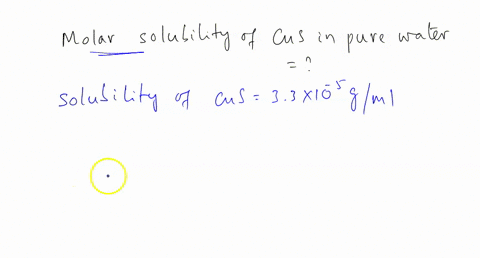 Molar solubility of CuS in pure water
= ?
solubility of CuS = 3.3 × 10⁻⁵ g/ml